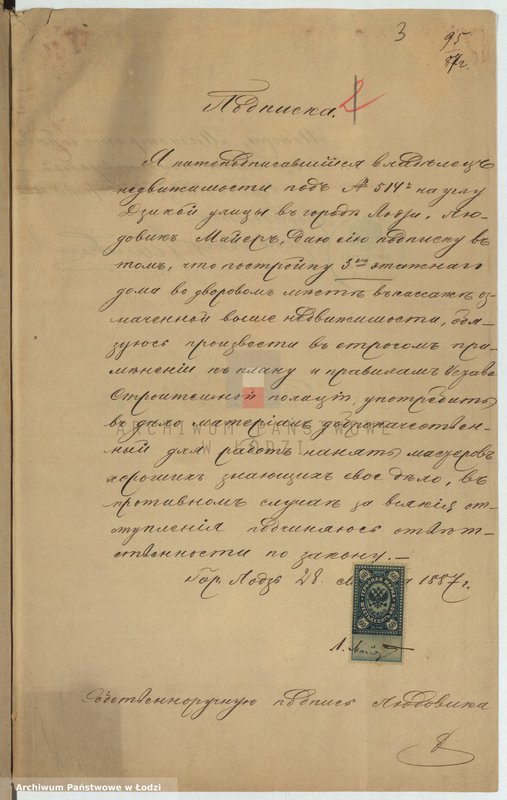 3
95
87г.
Подписка.
2
Я нижеподписавшійся владѣлецъ
недвижимости подъ № 514 на углу
Дзикой улицы въ городѣ Лодзи, Лю-
довикъ Майеръ, даю сію подписку въ
томъ, что постройку 3хъ этажнаго
дома во дворовомъ мѣстѣ въ пассажѣ оз-
наченной выше недвижимости, обя-
зуюсь произвести въ строгомъ при-
мѣненіи къ плану и правиламъ устава
Строительной полиціи, употребить
въ дѣло матеріалъ доброкачествен-
ный для работъ нанять мастеровъ
хорошихъ знающихъ свое дѣло, въ
противномъ случаѣ за всякія от-
ступленія подчиняюсь отвѣт-
ственности по закону.—
Гор. Лодзь 28 1887 г.
60 60
60 60
Л. Майеръ
Собственноручную подпись Людовика
ARCHIWUM PAŃSTWOWE
W ŁODZI
Archiwum Państwowe w Łodzi